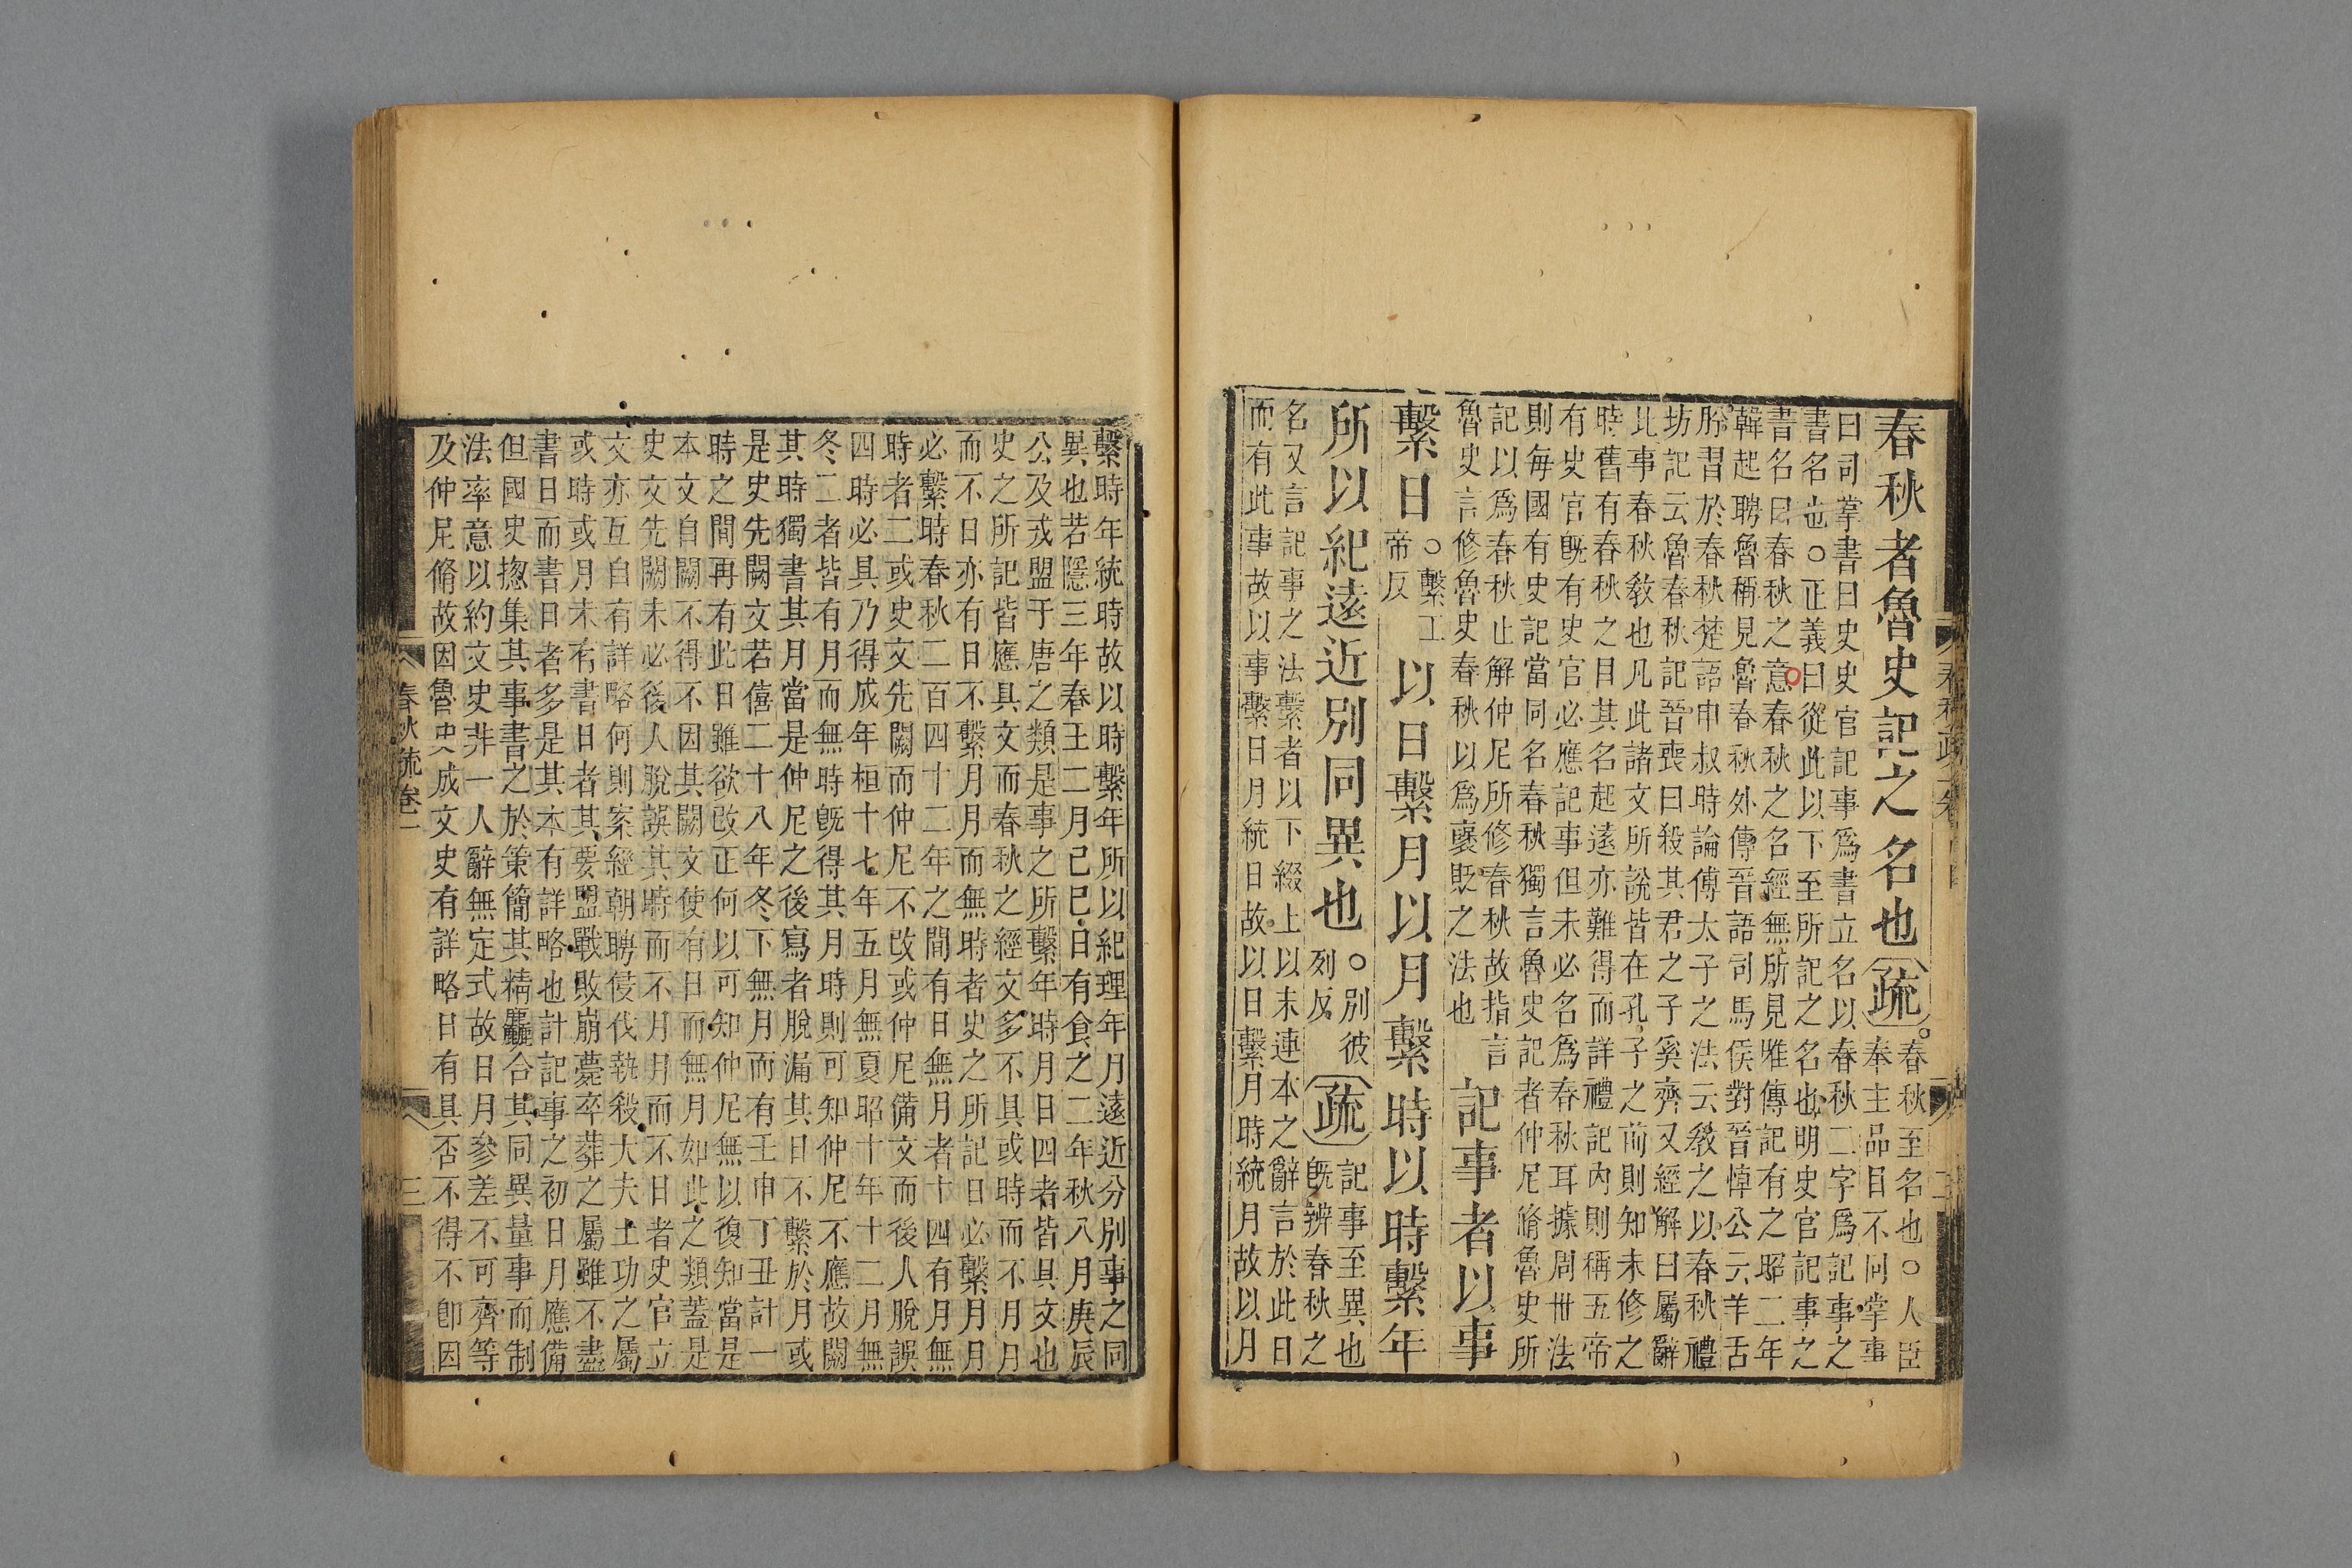 春秋者魯史記之名也疏春秋至名也○人臣
奉主品目不同掌事
曰司掌書曰史史官記事爲書立名以春秋二字爲記事之
書名也○正義曰從此以下至所記之名也明史官記事之
書名曰春秋之意春秋之名經無所見唯傳記有之昭二年
韓起聘魯稱見魯春秋外傳晉語司馬侯對晉悼公云羊舌
肸習於春秋楚語申叔時論傅太子之法云敎之以春秋禮
坊記云魯春秋記晉喪曰殺其君之子奚齊又經解曰屬辭
比事春秋敎也凡此諸文所說皆在孔子之前則知未修之
時舊有春秋之目其名起遠亦難得而詳禮記内則稱五帝
有史官旣有史官必應記事但未必名爲春秋耳據周世法
則每國有史記當同名春秋獨言魯史記者仲尼脩魯史所
記以爲春秋止解仲尼所修春秋故指言
魯史言修魯史春秋以爲襃貶之法也
記事者以事
繫日○繫工
帝反
以日繫月以月繫時以時繫年
所以紀遠近別同異也○別彼
列反
疏記事至異也
旣辨春秋之
名又言記事之法繫者以下綴上以末連本之辭言於此日
而有此事故以事繫日月統日故以日繫月時統月故以月
繫時年統時故以時繫年所以紀理年月遠近分別事之同
異也若隱三年春王二月己巳日有食之二年秋八月庚辰
公及戎盟于唐之類是事之所繫年時月日四者皆具文也
史之所記皆應具文而春秋之經文多不具或時而不月月
而不日亦有日不繫月月而無時者史之所記日必繫月月
必繫時春秋二百四十二年之間有日無月者十四有月無
時者二或史文先闕而仲尼不改或仲尼備文而後人脫誤
四時必具乃得成年桓十七年五月無夏昭十年十二月無
冬二者皆有月而無時旣得其月時則可知仲尼不應故闕
其時獨書其月當是仲尼之後寫者脫漏其日不繫於月或
是史先闕文若僖二十八年冬下無月而有壬申丁丑計一
時之間再有此日雖欲改正何以可知仲尼無以復知當是
本文自闕不得不因其闕文使有日而無月如此之類蓋是
史文先闕未必後人脫誤其時而不月月而不日者史官立
文亦互自有詳略何則案經朝聘侵伐執殺大夫土功之屬
或時或月未有書日者其要盟戰敗崩薨卒葬之屬雖不盡
書日而書日者多是其本有詳略也計記事之初日月應備
但國史揔集其事書之於策簡其精麤合其同異量事而制
法率意以約文史非一人辭無定式故日月參差不可齊等
及仲尼脩故因魯史成文史有詳略日有具否不得不卽因
春秋疏卷一 三